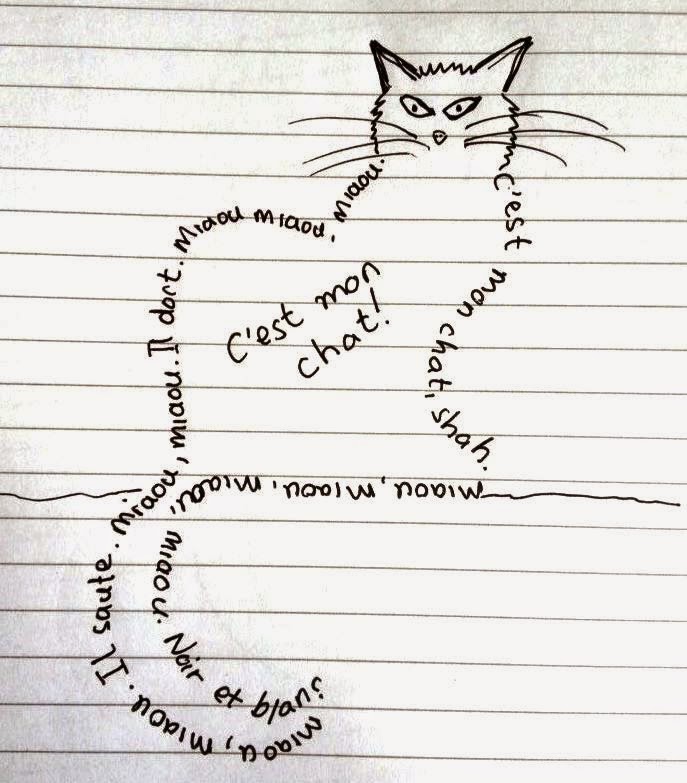 C'est
mon chat, Shay.
miaou, miaou, miaou, miaou,
miaou. Noir et blanc
miaou, miaou. Il saute. miaou, miaou. Il dort. Miaou miaou, miaou.
C'est mon
chat!